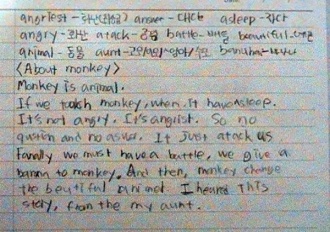 angriest - 화난(최상급) answer - 대답 asleep - 자다
angry - 화난 atack - 공격 battle - 배틀 beautiful -
animal - 동물 aunt - 고모/이모/ banana - 바나나
<About monkey>
Monkey is animal.
If we monkey, when, it have asleep.
It's not angry. It's angrist. So no
qustion and no aswer. It just atack us
Finally we must have a battle, we give a
banana to monkey. And then, monkey change
the beutiful animal. I heared This
story, from the my aunt.